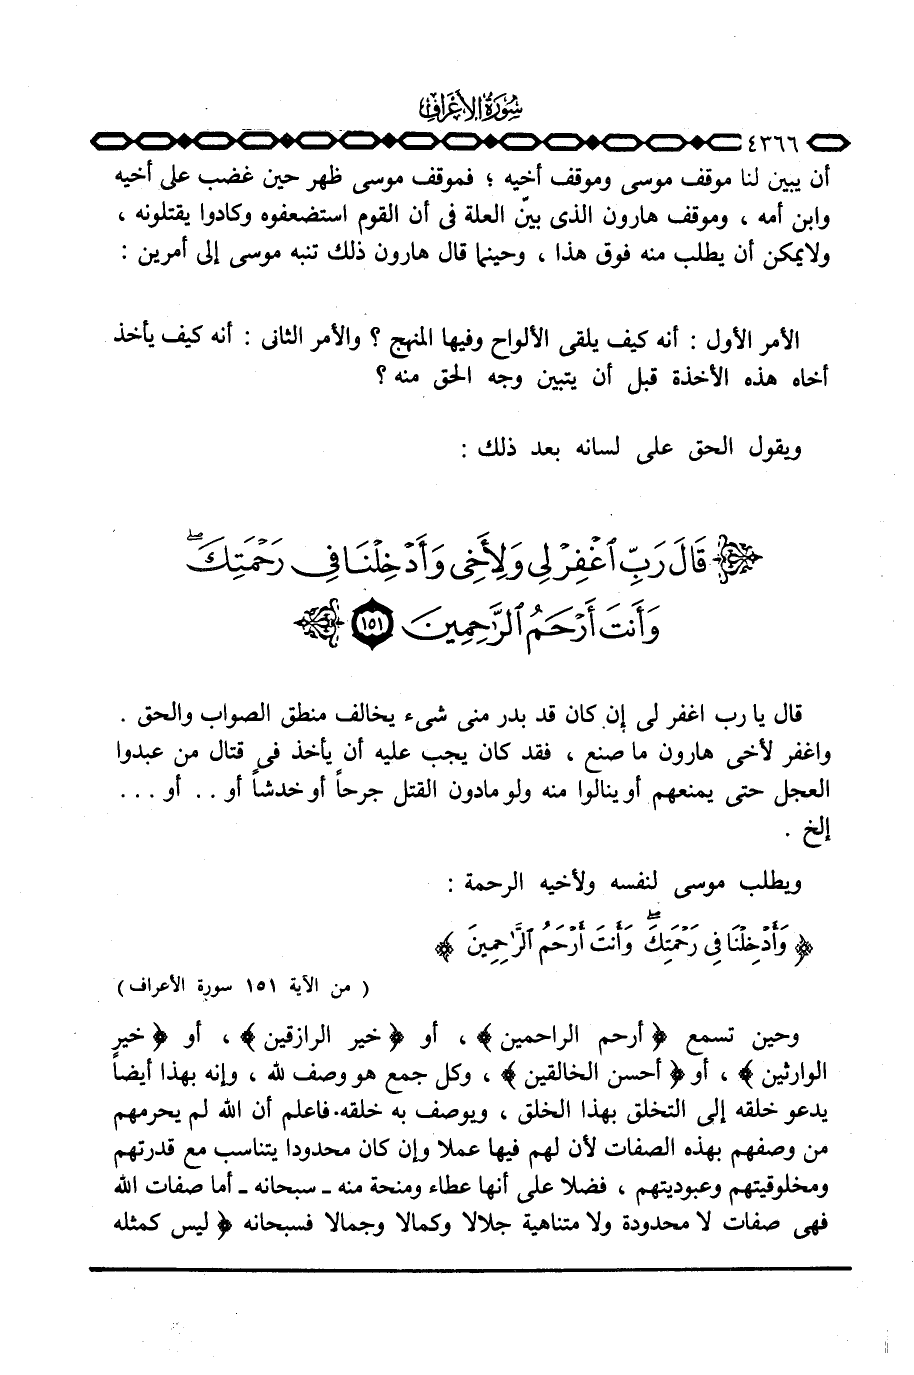 سُورَةُ الأَعْرَافِ
٤٣٦٦
أن يبين لنا موقف موسى وموقف أخيه ؛ فموقف موسى ظهر حين غضب على أخيه
وابن أمه ، وموقف هارون الذى بيّن العلة فى أن القوم استضعفوه وكادوا يقتلونه ،
ولايمكن أن يطلب منه فوق هذا ، وحينما قال هارون ذلك تنبه موسى إلى أمرين :
الأمر الأول : أنه كيف يلقى الألواح وفيها المنهج ؟ والأمر الثانى : أنه كيف يأخذ
أخاه هذه الأخذة قبل أن يتبين وجه الحق منه ؟
ويقول الحق على لسانه بعد ذلك :
قَالَ رَبِّ ٱغْفِرْ لِي وَلِأَخِى وَأَدْخِلْنَا فِى رَحْمَتِكَ ۖ
وَأَنتَ أَرْحَمُ ٱلرَّٰحِمِينَ ١٥١
قال يا رب اغفر لى إن كان قد بدر منى شىء يخالف منطق الصواب والحق .
واغفر لأخى هارون ما صنع ، فقد كان يجب عليه أن يأخذ فى قتال من عبدوا
العجل حتى يمنعهم أو ينالوا منه ولو مادون القتل جرحاً أو خدشاً أو .. أو ...
إلخ .
ويطلب موسى لنفسه ولأخيه الرحمة :
﴿ وَأَدْخِلْنَا فِى رَحْمَتِكَ ۖ وَأَنتَ أَرْحَمُ ٱلرَّٰحِمِينَ ﴾
( من الآية ١٥١ سورة الأعراف )
وحين تسمع ﴿ أرحم الراحمين ﴾ ، أو ﴿ خير الرازقين ﴾ ، أو ﴿ خير
الوارثين ﴾ ، أو ﴿ أحسن الخالقين ﴾ ، وكل جمع هو وصف لله ، وإنه بهذا أيضاً
يدعو خلقه إلى التخلق بهذا الخلق ، ويوصف به خلقه. فاعلم أن الله لم يحرمهم
من وصفهم بهذه الصفات لأن لهم فيها عملا وإن كان محدودا يتناسب مع قدرتهم
ومخلوقيتهم وعبوديتهم ، فضلا على أنها عطاء ومنحة منه ـ سبحانه ـ أما صفات الله
فهى صفات لا محدودة ولا متناهية جلالا وكمالا وجمالا فسبحانه ﴿ ليس كمثله